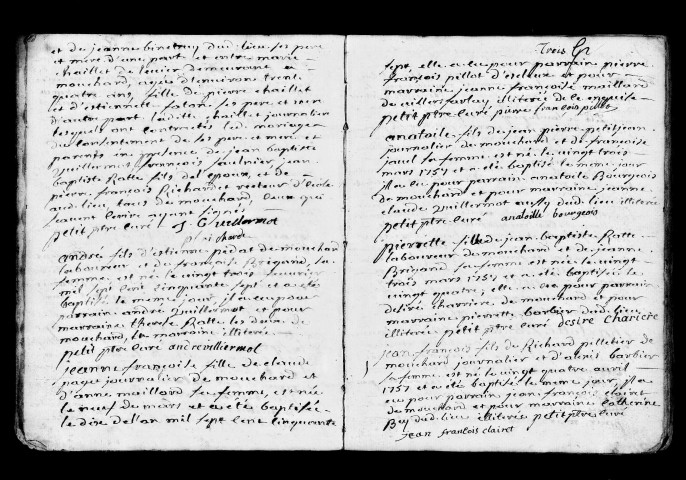 et de jeanne binetruy dud. lieu ses pere
et mere d'une part et entre marie
chaillet de demeurant a
mouchard, agée d'environs trente
quatre ans, fille de pierre chaillet
et d'etiennette ses pere et mere
d'autre part laditte chaillet journalier
lesquels ont contractés led. mariage
du consentement de ses pere et mere et
parents en presence de jean baptiste
Guillermot francois saulnier jean
baptiste Ratte fils del'epoux, et de
pierre francois Richard et recteur d'école
aud. lieu, tous de mouchard, ceux qui
scavent ecrire ayant signés
petit ptre curé J. Guillermot
p f richarde
andré fils d'estienne pidat de mouchard
laboureur et de francoise Brigand, sa
femme, est né le vingt trois fevrier
mil sept cent cinquante sept et a eté
baptisé le meme jour, il a eu pour
parrain andré Guillermot et pour
marraine therese Ratte les deux de
mouchard, la marraine illiterée
petit ptre curé andre villiermot
jeanne francoise fille de claude
page journalier de mouchard et
d'anne maillard sa femme, est née
le neuf de mars et a eté baptisée
le dix de l'an mil sept cent cinquante
Trois
sept, elle a eu pour parrain pierre
françois pillot d'escleux et pour
marraine jeanne françoise maillard
de villersfarlay illiterée de ce enquise
petit ptre curé pierre francois pillot
anatoile fils de jean pierre petitjean
journalier de mouchard et de françoise
jaul sa femme est né le vingt trois
mars 1757 et a eté baptisé le meme jour
il a eu pour parrain anatoile Bourgeois
de mouchard et pour marraine jeanne
claude Guillermot aussy dud. lieu illiterée
petit ptre curé anatoille bourgeois
pierrette fille de jean baptiste Ratte
laboureur de mouchard et de jeanne
Brigand sa femme est née le vingt
trois mars 1757 et a eté baptisée le
vingt quatre, elle a eu pour parrain
desiré charriere de mouchard et pour
marraine pierrette barbier dud. lieu
illiterée petit ptre curé desire chariere
jean françois fils de Richard pelletier de
mouchard journalier et d' barbier
sa femme est né le vingt quatre avril
1757 et a eté baptisé le meme jour, il a
eu pour parrain jean françois clairet
de mouchard et pour marraine catherine
Bey dud. lieu illiterée petit ptre curé
jean francois clairet